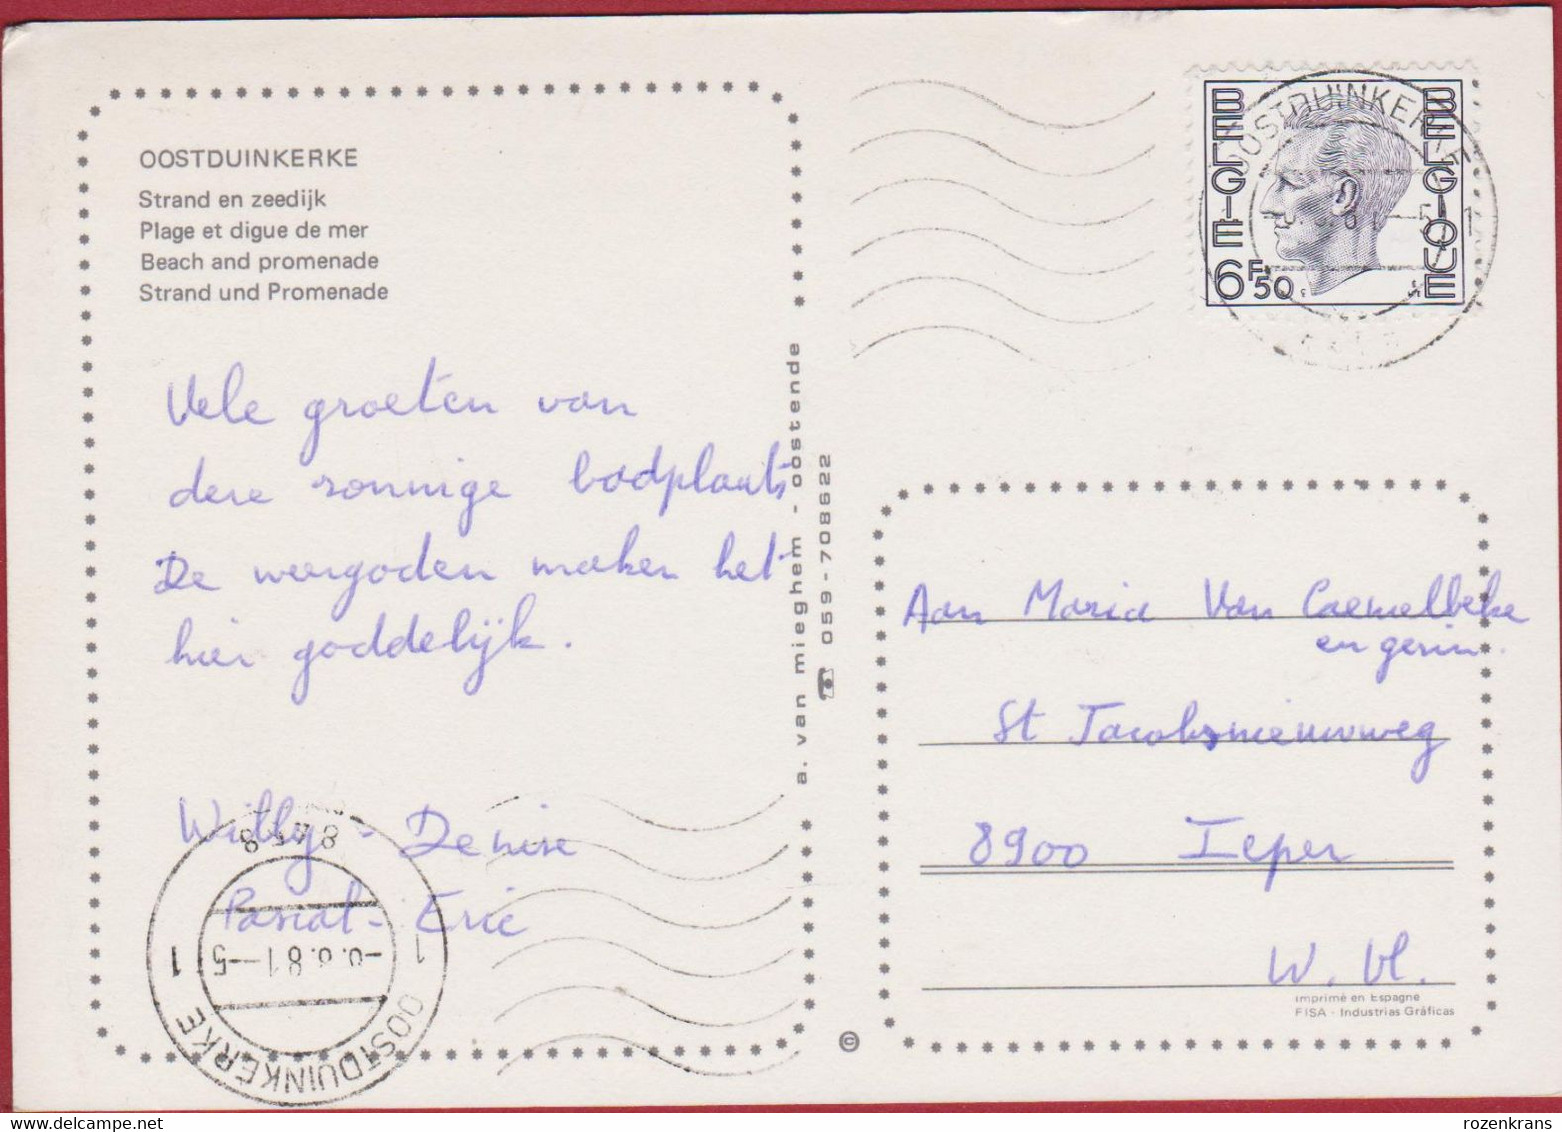 OOSTDUINKERKE
Strand en zeedijk
Plage et digue de mer
Beach and promenade
Strand und Promenade
Vele groeten van
deze zonnige badplaats
De weergoden maken het
hier goddelijk.
Willy - Denise
Pascal - Eric
a. van mieghem - oostende
059-708622
BELGIE
BELGIQUE
6F50
OOSTDUINKERKE
Aan Maria Van Caemelbeke
en gezin.
St Jacobsnieuwweg
8900 Ieper
W. Vl.
Imprimé en Espagne
FISA - Industrias Gráficas
©
OOSTDUINKERKE
1 1
8458
81-5
rozenkrans